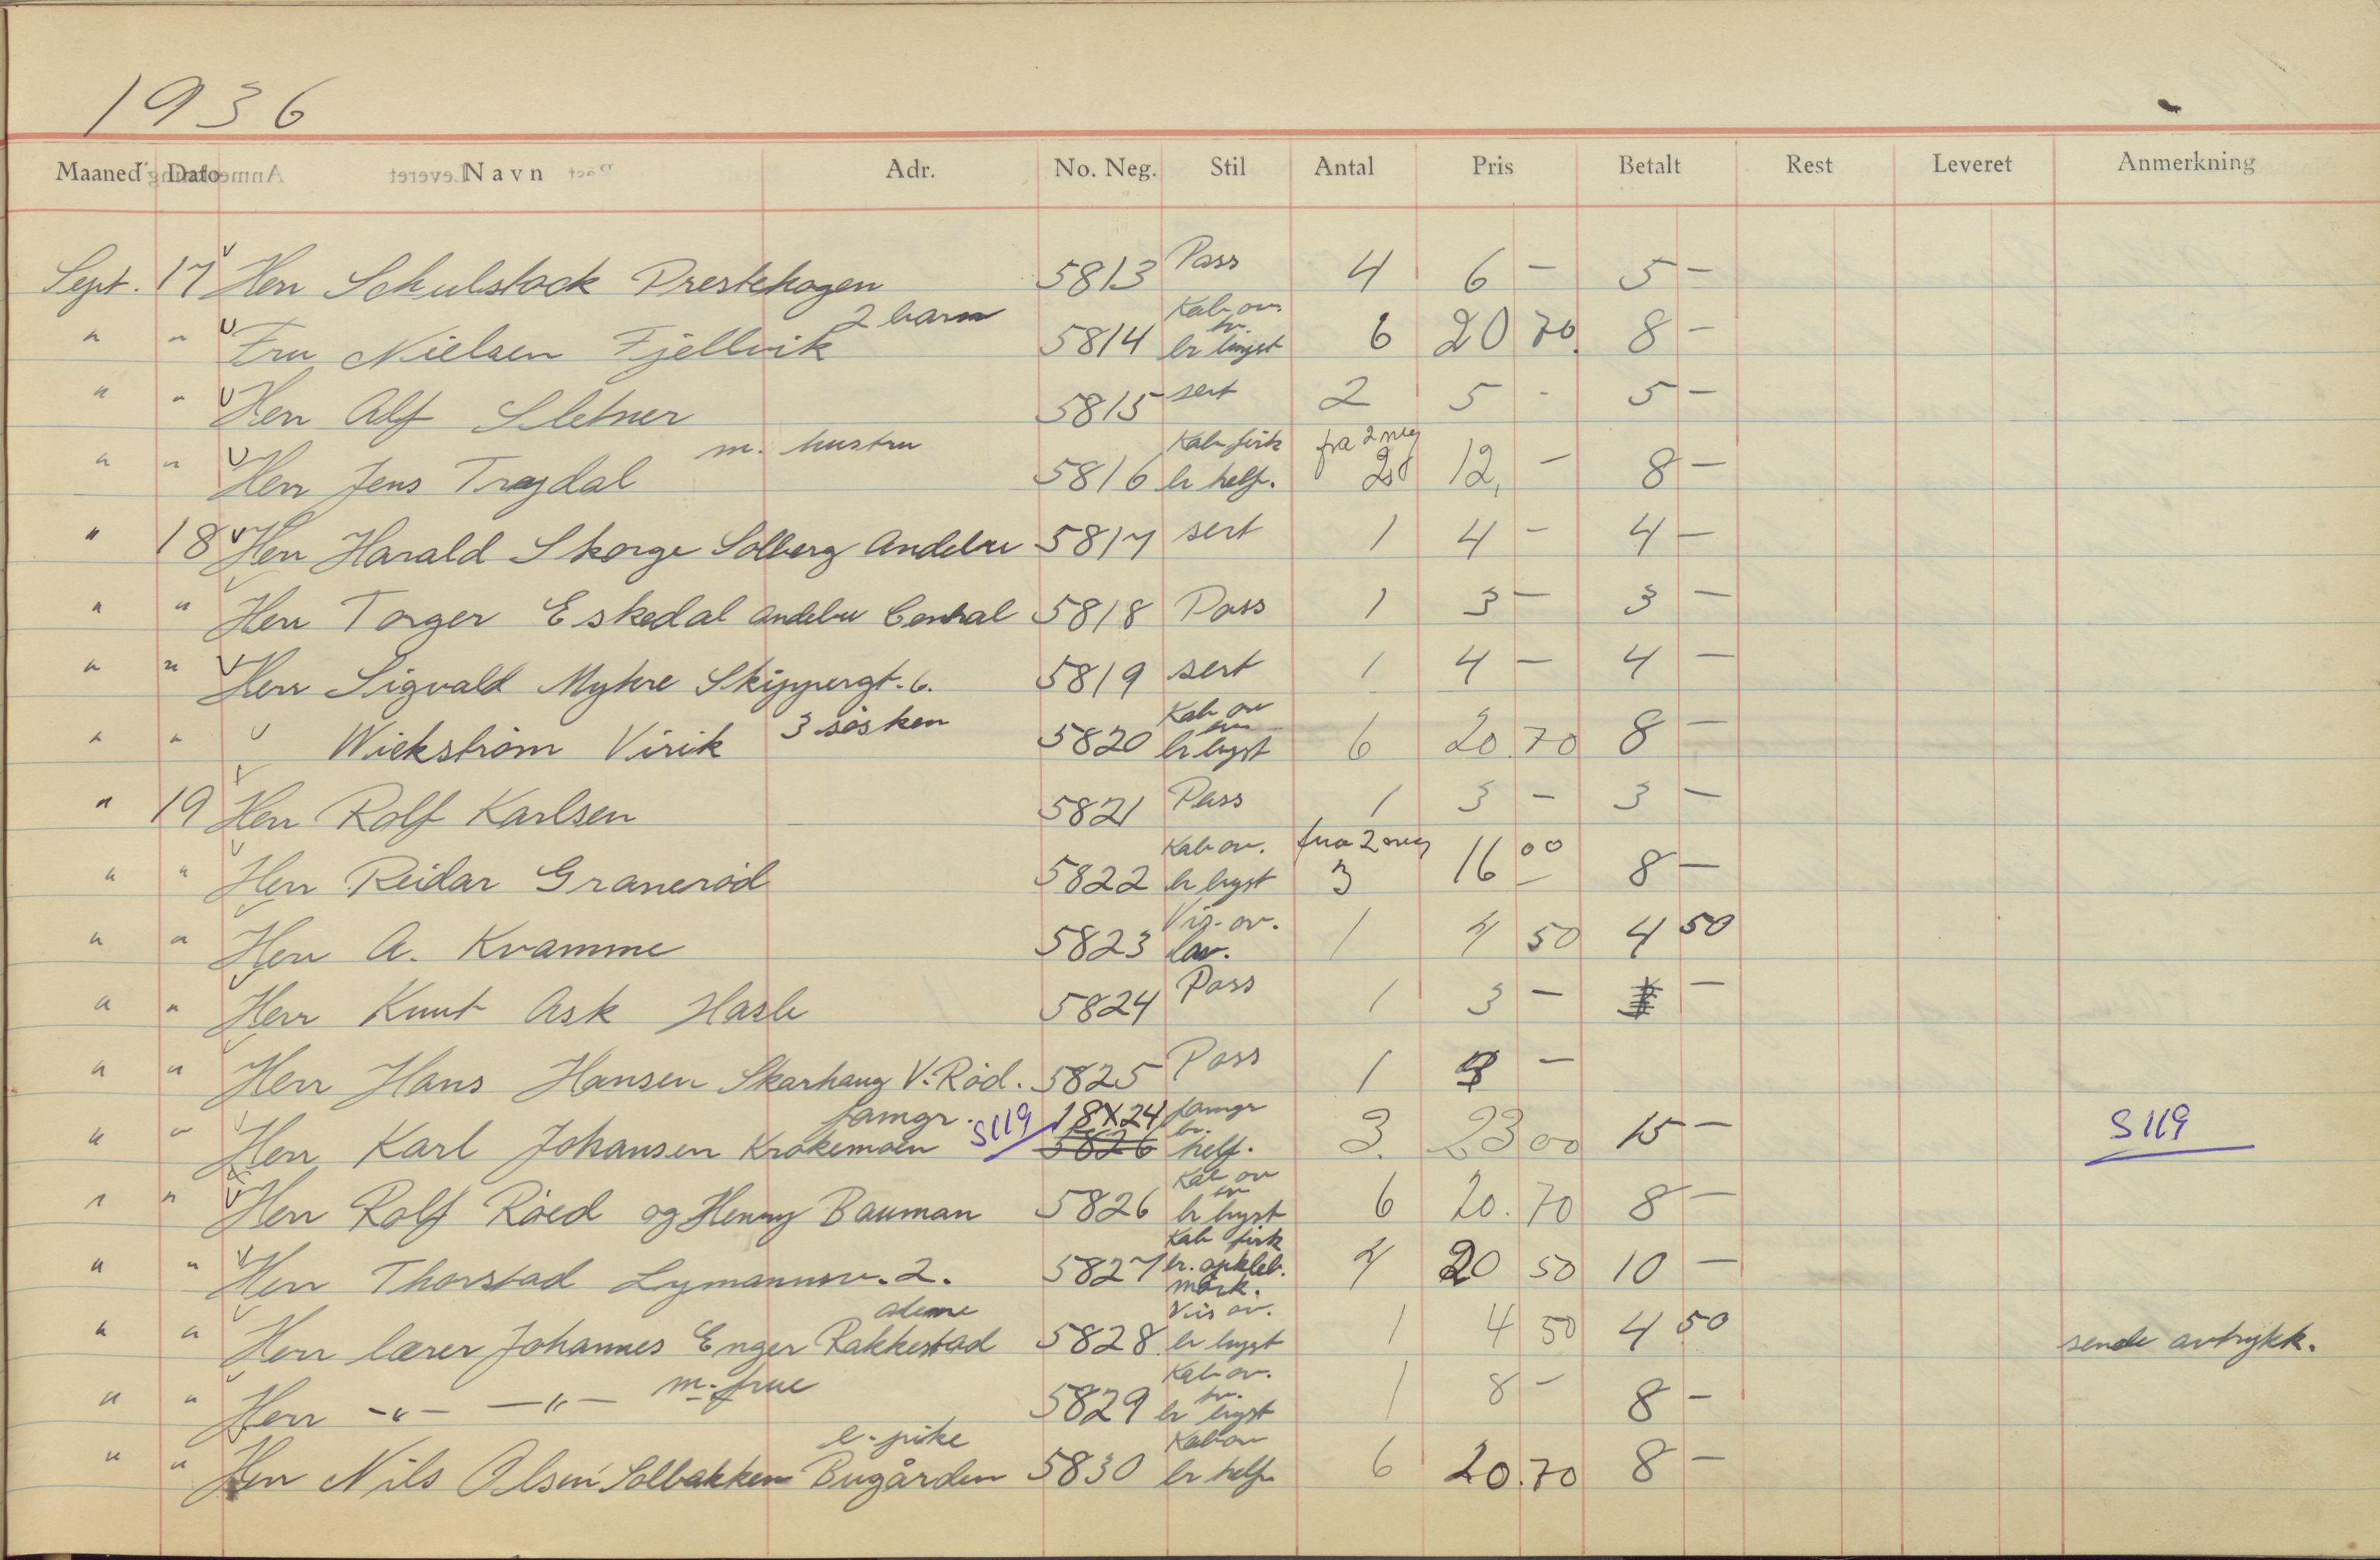 1936
Maaned Dato Navn Adr. No. Neg. Stil Antal Pris Betalt Rest Leveret Anmerkning
Sept. 17 Herr Schulstock Prestehagen 5813 Pass 4 6 - 5 -
" " Fru Nielsen Fjellvik 2 barn 5814 Kab ov. br. bryst 6 20 70. 8 -
" " Herr Alf Sletner 5815 sert 2 5 - 5 -
" " Herr Jens Trægdal m. hustru 5816 Kab firk br helf. fra 2 neg 2 12, - 8 -
" 18 Herr Harald Skorge Solberg Andebu 5817 sert 1 4 - 4 -
" " Herr Torger Eskedal Andebu Central 5818 Pass 1 3 - 3 -
" " Herr Sigvald Myhre Skippergt. 6. 5819 sert 1 4 - 4 -
" " Wickström Virik 3 søsken 5820 Kab ov br bryst 6 20.70 8 -
" 19 Herr Rolf Karlsen 5821 Pass 1 3 - 3 -
" " Herr Reidar Granerød 5822 Kab ov. br bryst fra 2 neg 3 16 00 8 -
" " Herr A. Kvamme 5823 Vis. ov. lav. 1 4 50 4 50
" " Herr Knut Ask Hasle 5824 Pass 1 3 - -
" " Herr Hans Hansen Skarhaug V. Rød. 5825 Pass 1 -
" " Herr Karl Johansen Krokemoen famgr. S119 18X24 5826 famgr br. helf. 3. 23 00 15 - S119
" " Herr Rolf Röed og Henny Bauman 5826 Kab ov br bryst 6 20.70 8 -
" " Herr Thorstad Lymannsv. 2. 5827 Kab firk br. opkleb. mørk. 4 20 50 10 -
" " Herr lærer Johannes Enger alene Rakkestad 5828 Vis ov. br bryst 1 4 50 4 50 sende avtrykk.
" " Herr -"- -"- m. frue 5829 Kab ov. br bryst 1 8 - 8 -
" " Herr Nils Olsen Solbakken l. pike Bugården 5830 Kab ov br helf. 6 20.70 8 -